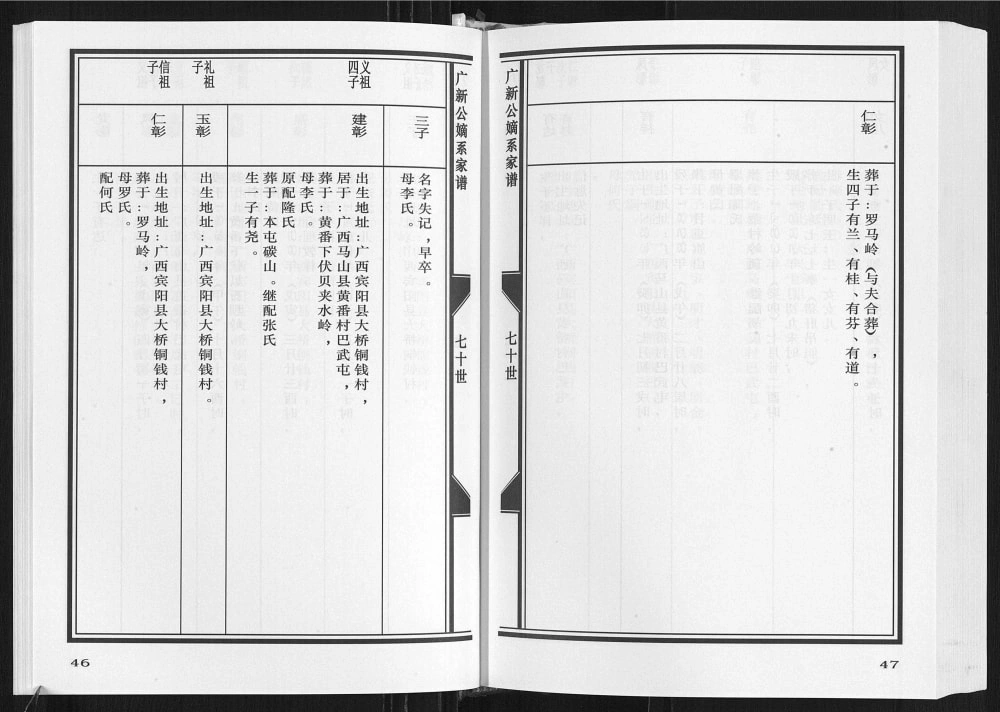 广新公嫡系家谱
七十世
三子
名字失记，早卒。
母李氏。
义祖
四子
建彰
出生地址：广西宾阳县大桥铜钱村，
居于：广西马山县黄番村巴武屯，
葬于：黄番下伏贝夹水岭，
母李氏。
原配隆氏
葬于：本屯碳山。继配张氏
生一子有尧。
礼祖
子
玉彰
出生地址：广西宾阳县大桥铜钱村。
信祖
子
仁彰
出生地址：广西宾阳县大桥铜钱村，
葬于：罗马岭，
母罗氏。
配何氏
46
仁彰
葬于：罗马岭（与夫合葬），
生四子有兰、有桂、有芬、有道。
广新公嫡系家谱
七十世
47